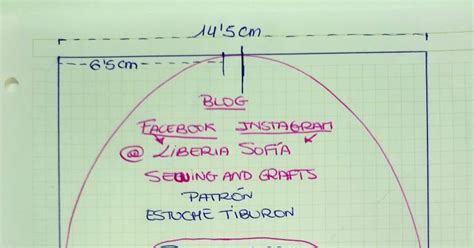 14'5cm
6'5cm
BLOG
FACEBOOK INSTAGRAM
@ LIBERIA SOFÍA
SEWING AND GRAFTS
PATRÓN
ESTUCHE TIBURON